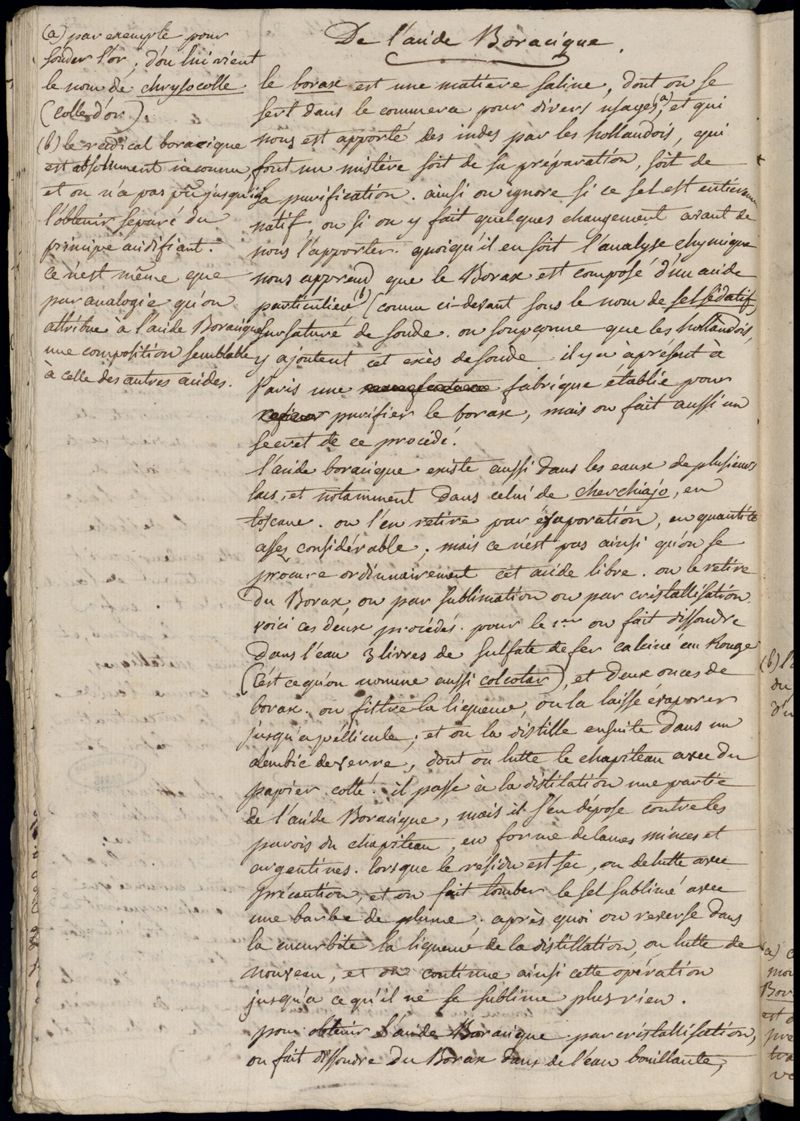 De l'acide Boracique.
(a) par exemple pour
souder l'or, d'ou lui vient
le nom de chrysocolle
(colle d'or).
(b) le radical boracique
est absolument inconnu
et on n'a pas pu jusqu'ici
l'obtenir separé du
principe acidifiant.
ce n'est même que
par analogie qu'on
attribue à l'acide Boracique
une composition semblable
à celle des autres acides.
le borax est une matiere saline, dont on se
sert dans le commerce pour divers usages (a), et qui
nous est apporté des indes par les hollandois, qui
font un mistère soit de sa préparation, soit de
sa purification. ainsi on ignore si ce sel est entierem
natif, ou si on y fait quelques changement avant de
nous l'apporter. quoiqu'il en soit l'analyse chymique
nous apprend que le Borax est composé d'un acide
particulier (b) (connu ci-devant sous le nom de sel sédatif)
sursaturé de soude. on soupçonne que les hollandois,
y ajoutent cet exès de soude. il y a àprésent à
Paris une manufacture fabrique établie pour
rafiner purifier le borax, mais on fait aussi un
secret de ce procédé.
l'acide boracique existe aussi dans les eaux de plusieurs
lacs, et notamment dans celui de cherchiajo, en
toscane. on l'en retire par évaporation, en quantité
assés considérable. mais ce n'est pas ainsi qu'on se
procure ordinairement cet acide libre. on le retire
du Borax ou par sublimation ou par cristallisation.
voici ces deux procédés. pour le 1er on fait dissoudre
dans l'eau 3 livres de sulfate de fer calciné au Rouge
(c'est ce qu'on nomme aussi colcotar), et deux onces de
borax. on filtre la liqueur, on la laisse évaporer
jusqu'a péllicule, et on la distille ensuite dans un
alembic de verre, dont on lutte le chapiteau avec du
papier collé. il passe à la distilation une partie
de l'acide Boracique, mais il s'en dépose contre les
parois du chapiteau, en forme de lames minces et
argentines. lorsque le résidu est sec, on délutte avec
précaution, et on fait tomber le sel sublimé avec
une barbe de plume. après quoi on reverse dans
la cucurbite la liqueur de la distillation, on lutte de
nouveau, et on continue ainsi cette opération
jusqu'a ce qu'il ne se sublime plus rien.
pour obtenir l'acide Boracique par cristallisation,
on fait dissoudre du Borax dans de l'eau bouillante,